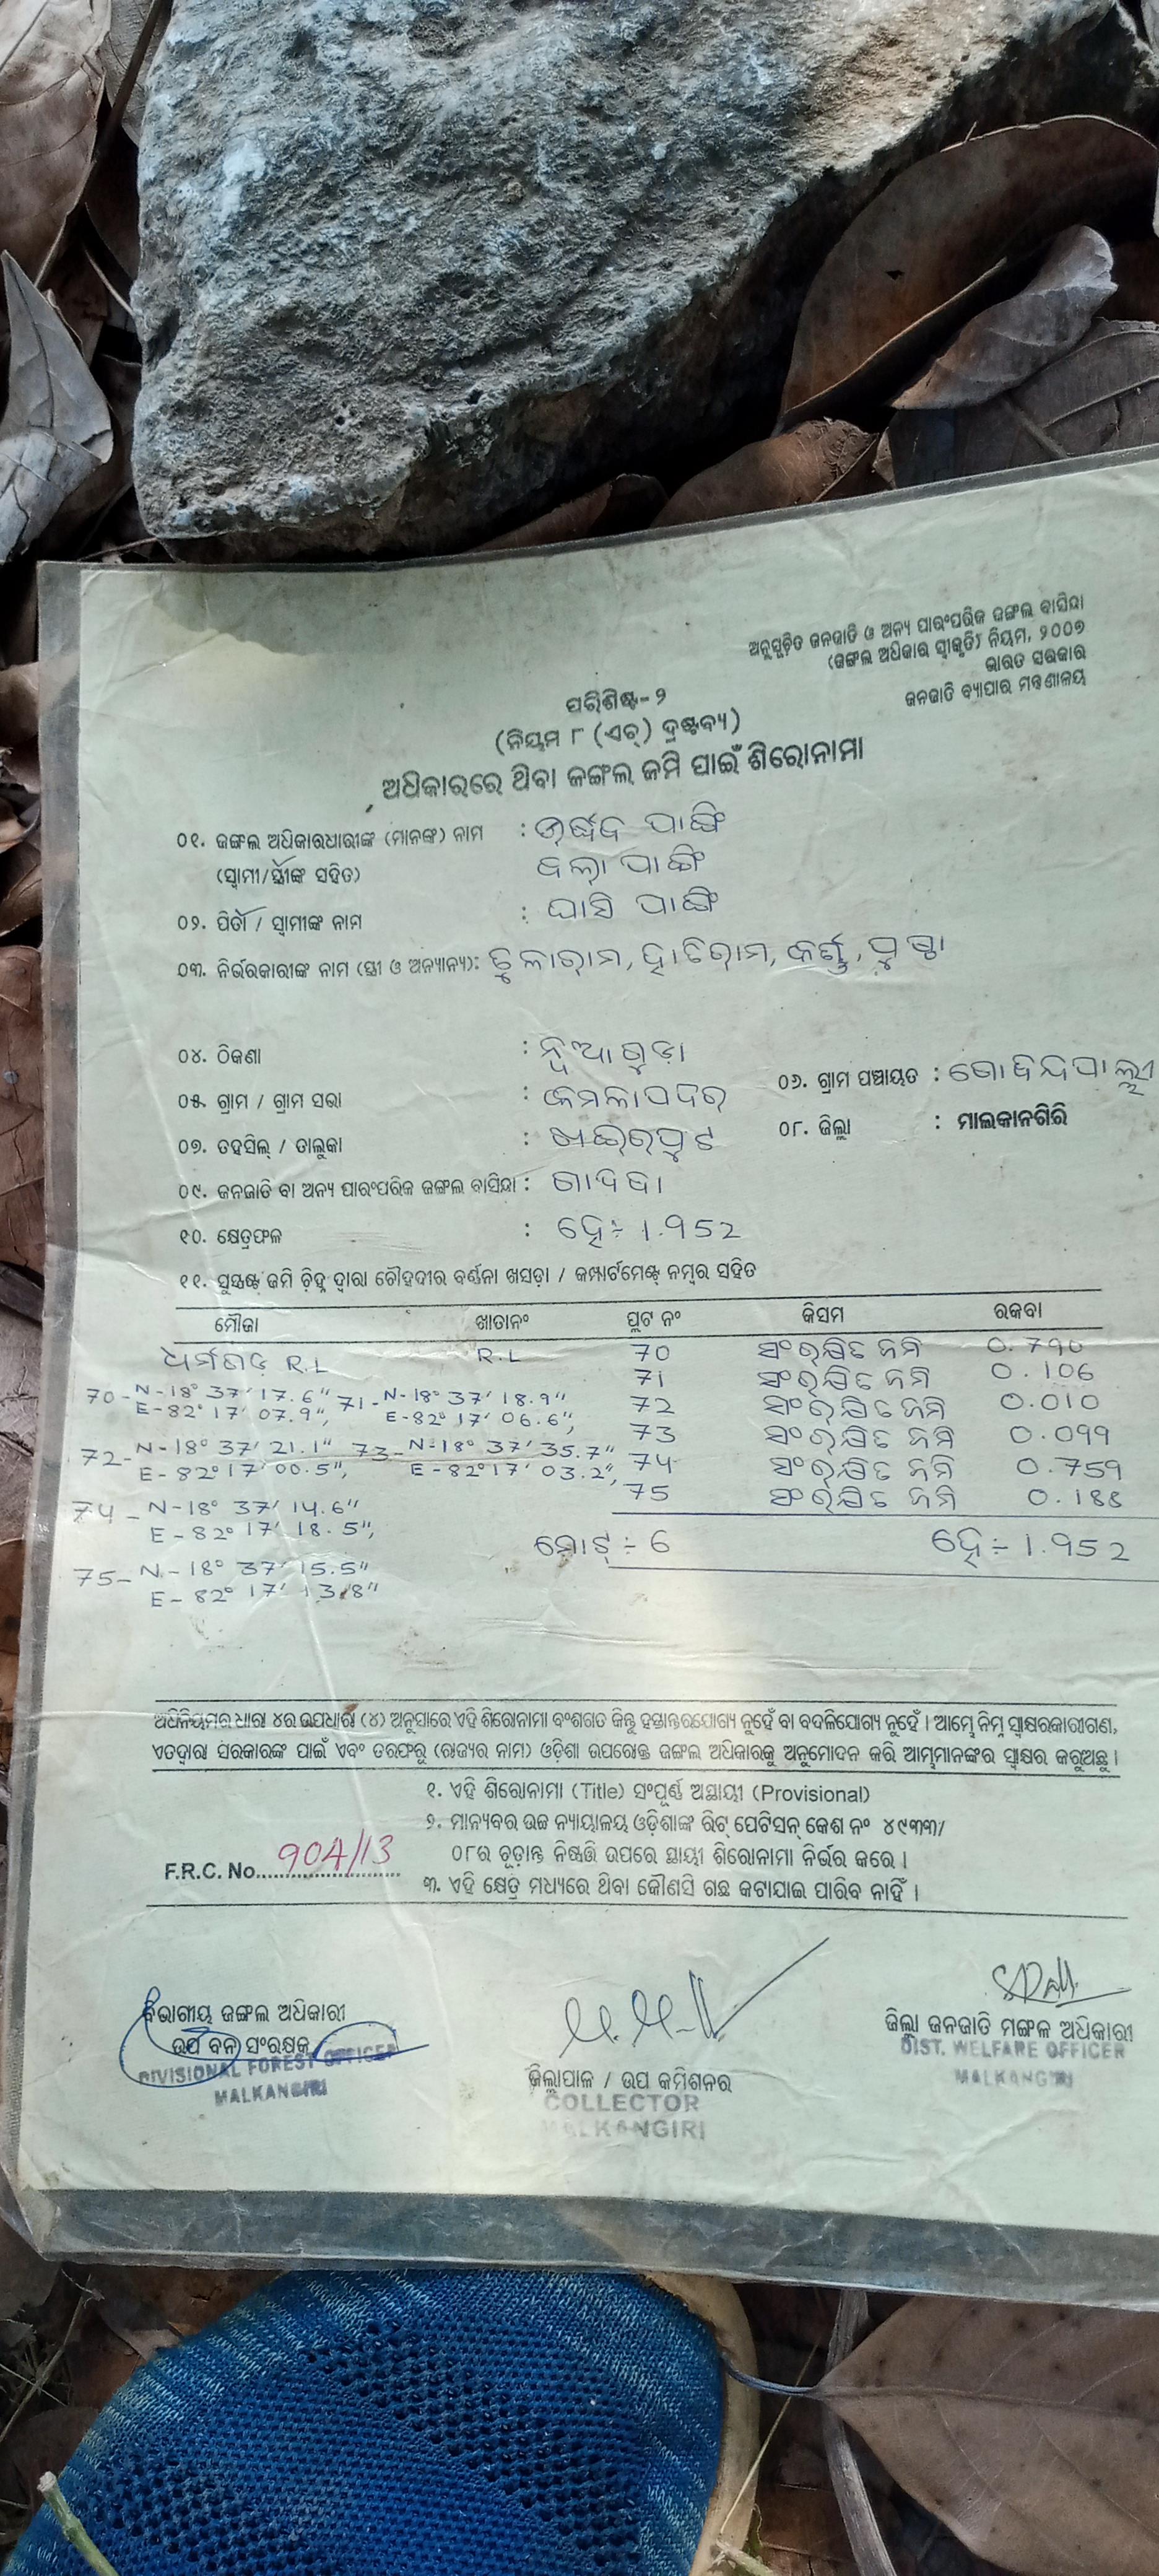 ଅନୁସୂଚିତ ଜନଜାତି ଓ ଅନ୍ୟ ପାରଂପରିକ ଜଙ୍ଗଲ ବାସିନ୍ଦା
(ଜଙ୍ଗଲ ଅଧିକାର ସ୍ୱୀକୃତି) ନିୟମ, ୨୦୦୭
ଭାରତ ସରକାର
ଜନଜାତି ବ୍ୟାପାର ମନ୍ତ୍ରଣାଳୟ
ପରିଶିଷ୍ଟ-୨
(ନିୟମ ୮ (ଏଚ୍) ଦ୍ରଷ୍ଟବ୍ୟ)
ଅଧିକାରରେ ଥିବା ଜଙ୍ଗଲ ଜମି ପାଇଁ ଶିରୋନାମା
୦୧. ଜଙ୍ଗଲ ଅଧିକାରଧାରୀଙ୍କ (ମାନଙ୍କ) ନାମ : ପାଙ୍ଗି
(ସ୍ୱାମୀ/ସ୍ତ୍ରୀଙ୍କ ସହିତ) ପାଙ୍ଗି
୦୨. ପିତା / ସ୍ୱାମୀଙ୍କ ନାମ : ଘାସି ପାଙ୍ଗି
୦୩. ନିର୍ଭରକାରୀଙ୍କ ନାମ (ସ୍ତ୍ରୀ ଓ ଅନ୍ୟାନ୍ୟ): ତୁଳାରାମ,
୦୪. ଠିକଣା : ନୂଆଗୁଡ଼ା
୦୫. ଗ୍ରାମ / ଗ୍ରାମ ସଭା : କମଳାପଦର ୦୬. ଗ୍ରାମ ପଞ୍ଚାୟତ : ଗୋବିନ୍ଦପାଲ୍ଲୀ
୦୭. ତହସିଲ୍ / ତାଲୁକା : ଖଇରପୁଟ ୦୮. ଜିଲ୍ଲା : ମାଲକାନଗିରି
୦୯. ଜନଜାତି ବା ଅନ୍ୟ ପାରଂପରିକ ଜଙ୍ଗଲ ବାସିନ୍ଦା : ଗାଦବା
୧୦. କ୍ଷେତ୍ରଫଳ : ହେ÷ 1.952
୧୧. ସୁସ୍ପଷ୍ଟ ଜମି ଚିହ୍ନ ଦ୍ୱାରା ଚୌହଦୀର ବର୍ଣ୍ଣନା ଖସଡ଼ା / କମ୍ପାର୍ଟମେଣ୍ଟ ନମ୍ବର ସହିତ
ମୌଜା ଖାତାନଂ ପ୍ଲଟ ନଂ କିସମ ରକବା
ଧର୍ମଗଡ଼ R.L R.L 70 ସଂରକ୍ଷିତ ଜମି 0.790
71 ସଂରକ୍ଷିତ ଜମି 0.106
70- N-18° 37' 17.6" 71- N-18° 37' 18.9" 72 ସଂରକ୍ଷିତ ଜମି 0.010
E-82° 17' 07.9", E-82° 17' 06.6", 73 ସଂରକ୍ଷିତ ଜମି 0.099
72- N-18° 37' 21.1" 73- N-18° 37' 35.7" 74 ସଂରକ୍ଷିତ ଜମି 0.759
E-82° 17' 00.5", E-82° 17' 03.2", 75 ସଂରକ୍ଷିତ ଜମି 0.188
74- N-18° 37' 14.6"
E-82° 17' 18.5",
ମୋଟ୍ ÷ 6 ହେ÷ 1.952
75- N-18° 37' 15.5"
E-82° 17' 13.8"
ଅଧିନିୟମର ଧାରା ୪ର ଉପଧାରା (୪) ଅନୁସାରେ ଏହି ଶିରୋନାମା ବଂଶଗତ କିନ୍ତୁ ହସ୍ତାନ୍ତରଯୋଗ୍ୟ ନୁହେଁ ବା ବଦଳିଯୋଗ୍ୟ ନୁହେଁ । ଆମ୍ଭେ ନିମ୍ନ ସ୍ୱାକ୍ଷରକାରୀଗଣ,
ଏତଦ୍ୱାରା ସରକାରଙ୍କ ପାଇଁ ଏବଂ ତରଫରୁ (ରାଜ୍ୟର ନାମ) ଓଡ଼ିଶା ଉପରୋକ୍ତ ଜଙ୍ଗଲ ଅଧିକାରକୁ ଅନୁମୋଦନ କରି ଆମ୍ଭମାନଙ୍କର ସ୍ୱାକ୍ଷର କରୁଅଛୁ ।
୧. ଏହି ଶିରୋନାମା (Title) ସଂପୂର୍ଣ୍ଣ ଅସ୍ଥାୟୀ (Provisional)
୨. ମାନ୍ୟବର ଉଚ୍ଚ ନ୍ୟାୟାଳୟ ଓଡ଼ିଶାଙ୍କ ରିଟ୍ ପେଟିସନ୍ କେଶ ନଂ ୪୯୩୩/
୦୮ର ଚୂଡ଼ାନ୍ତ ନିଷ୍ପତ୍ତି ଉପରେ ସ୍ଥାୟୀ ଶିରୋନାମା ନିର୍ଭର କରେ ।
F.R.C. No. 904/13
୩. ଏହି କ୍ଷେତ୍ର ମଧ୍ୟରେ ଥିବା କୌଣସି ଗଛ କଟାଯାଇ ପାରିବ ନାହିଁ ।
ବିଭାଗୀୟ ଜଙ୍ଗଲ ଅଧିକାରୀ
ଉପ ବନ ସଂରକ୍ଷକ
DIVISIONAL FOREST OFFICER
MALKANGIRI
ଜିଲ୍ଲାପାଳ / ଉପ କମିଶନର
COLLECTOR
MALKANGIRI
ଜିଲ୍ଲା ଜନଜାତି ମଙ୍ଗଳ ଅଧିକାରୀ
DIST. WELFARE OFFICER
MALKANGIRI